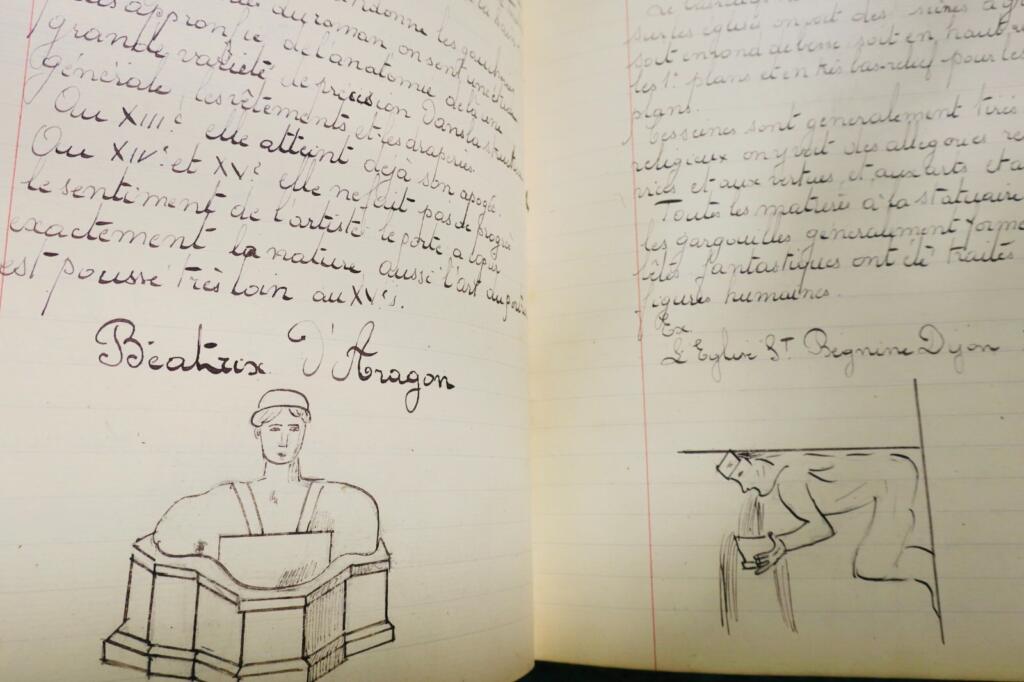 abandonne les gaucheries
du roman, on sent une étude
approfie de l'anatomie de là une
grande variété de précision dans la structure
générale, les vêtements et les draperies.
Au XIIIᵉ elle atteint déjà son apogée.
Au XIVᵉ et XVᵉ elle ne fait pas de progrès
le sentiment de l'artiste le porte à copier
exactement la nature aussi l'art du
est poussé très loin au XVᵉ s.
Béatrix D'Aragon
sur les églises on voit des scènes à
soit en rond de bosse soit en haut
les 1ᵉʳ plans et en très bas-relief pour les
plans.
Ces scènes sont généralement tirés
religieux on y voit des allégories
et aux vertus, et aux arts et a
Toutes les à la statuaire
les gargouilles généralement forme
fantastiques ont été traités
figures humaines.
Ex
L'Eglise Sᵀ Bégnine Dijon